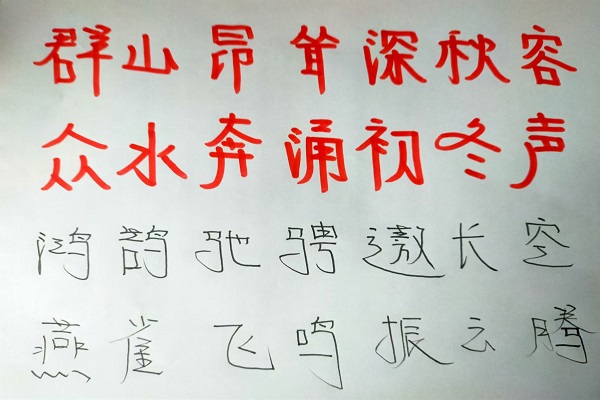 群山昂耸深秋容
众水奔涌初冬声
鸿鹄驰骋遨长空
燕雀飞鸣振云腾